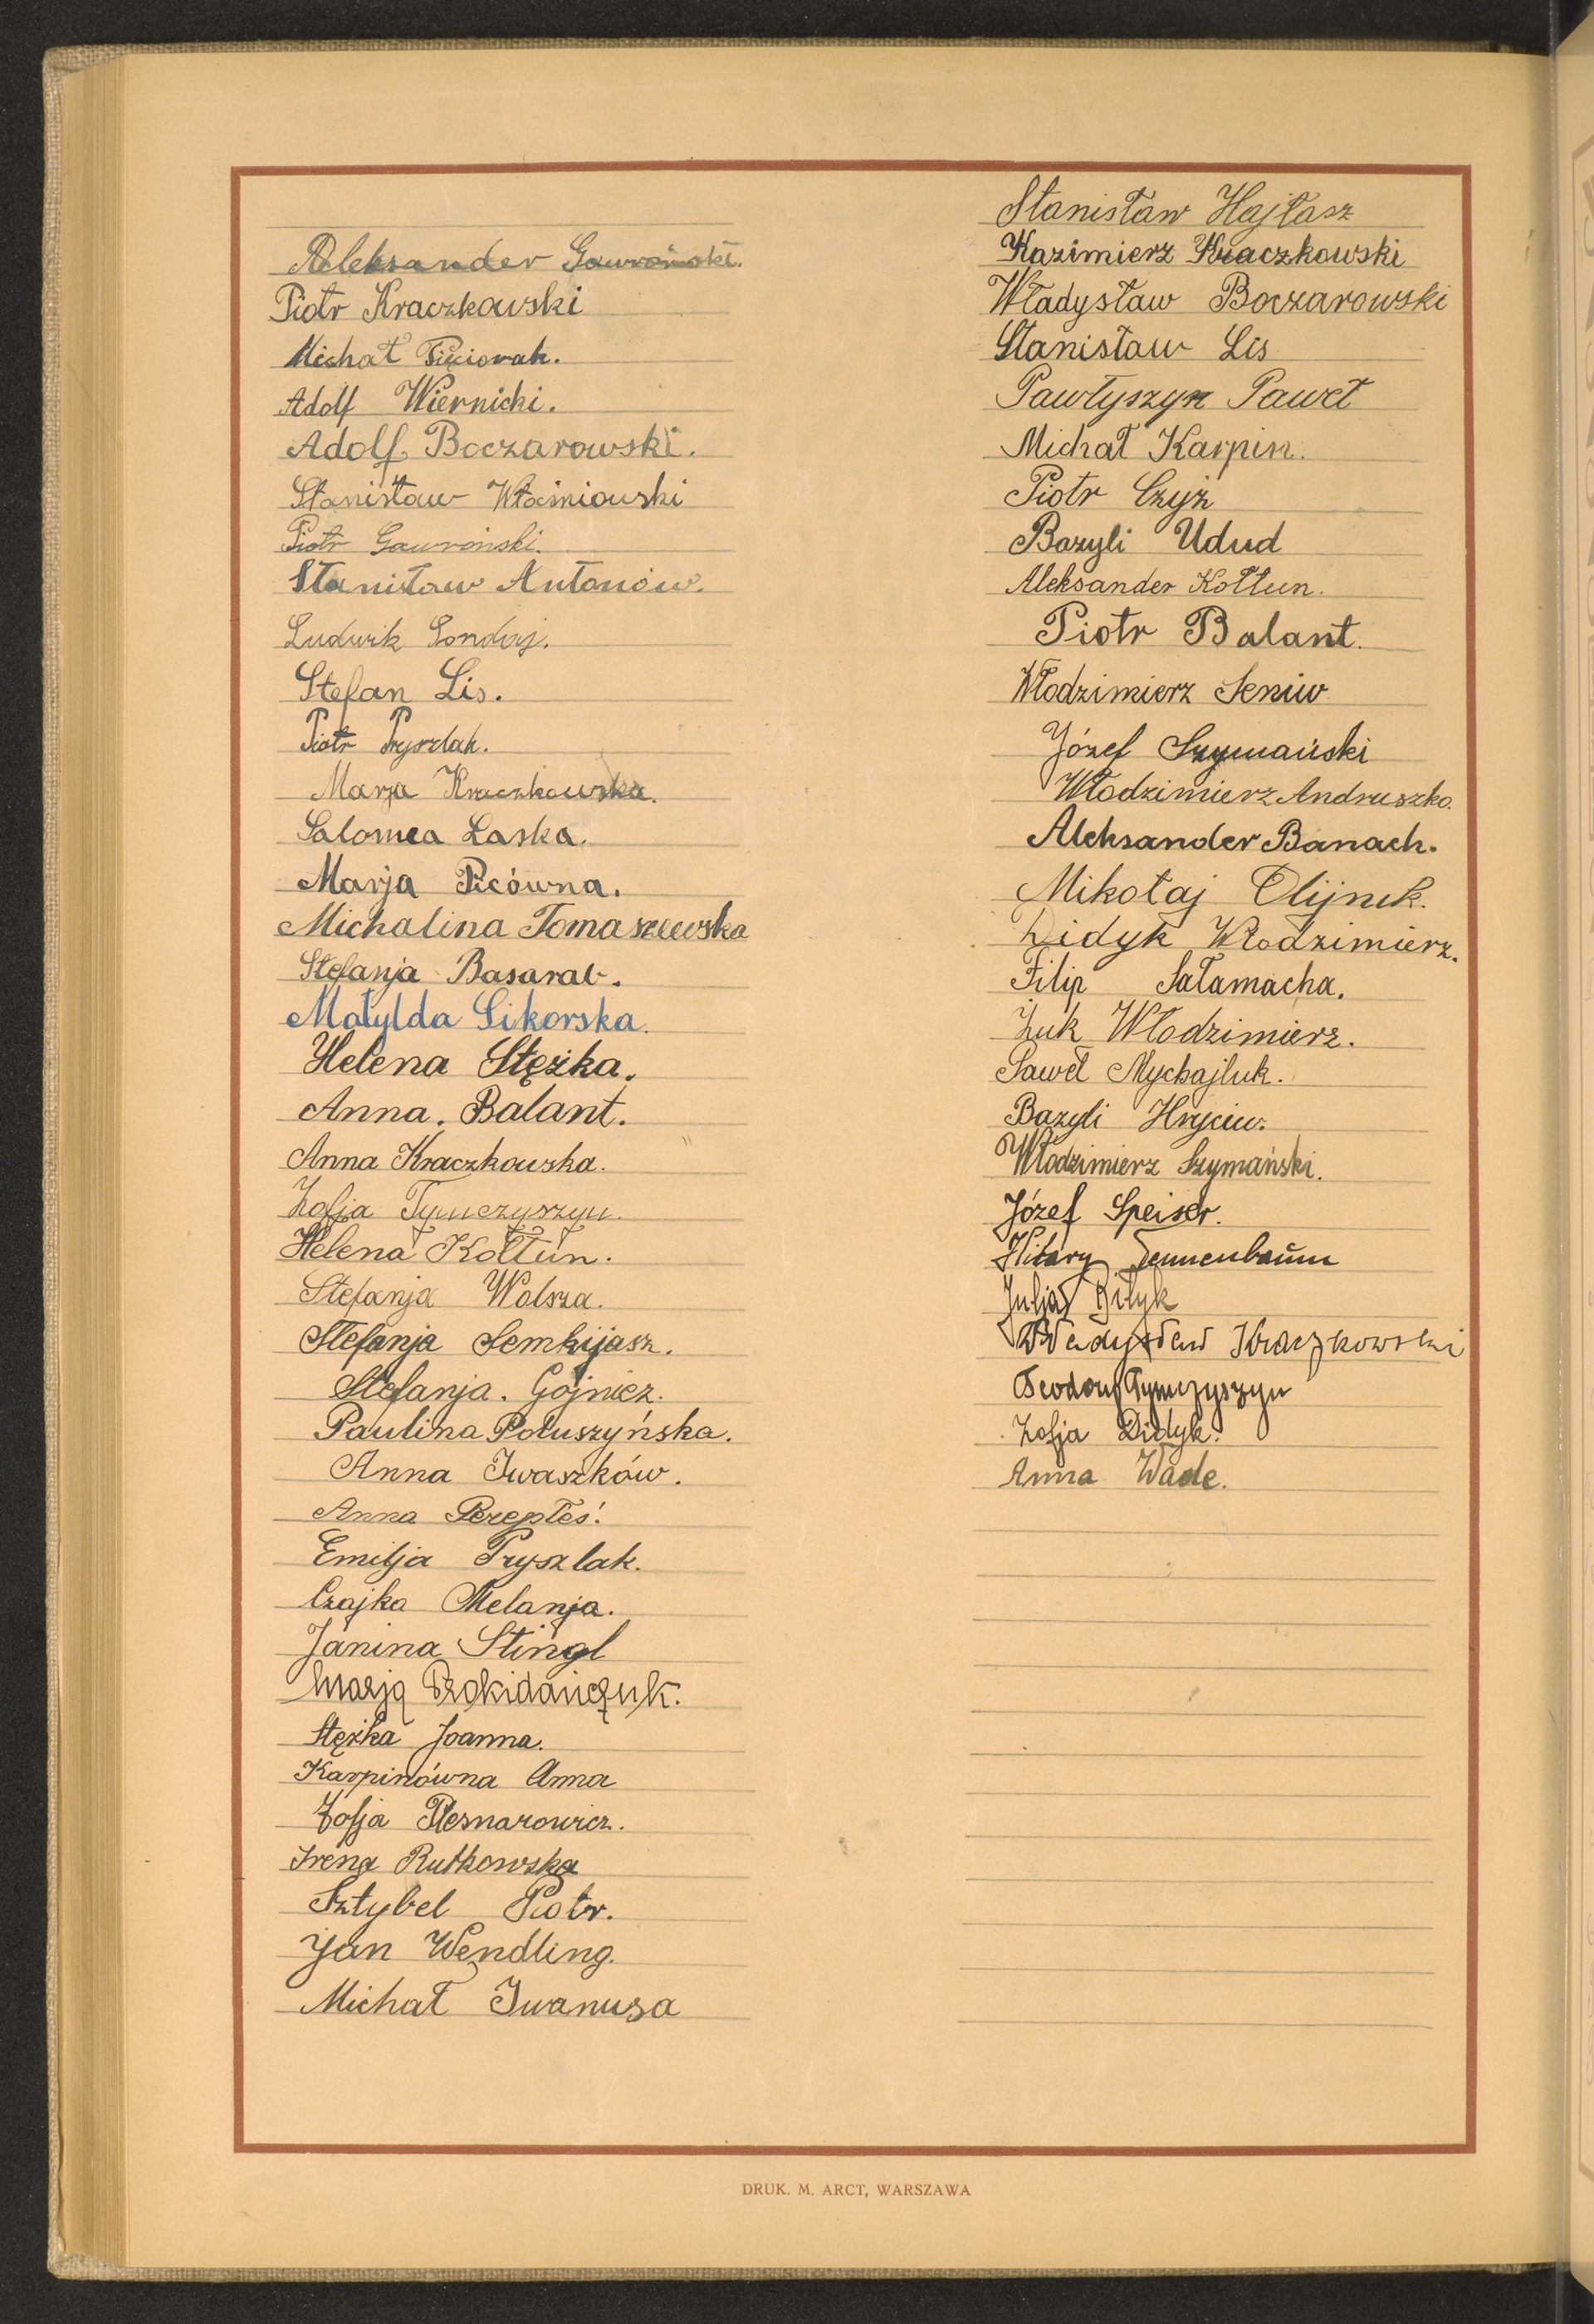 Aleksander Gawroński.
Piotr Kraczkowski
Michał
Adolf Wiernicki.
Adolf Boczarowski.
Stanisław Właśniowski
Piotr Gawroński.
Stanisław Antonów.
Ludwik Gondaj.
Stefan Lis.
Piotr Pryszlak.
Marja Kraczkowska.
Salomea Łaska.
Marja Picówna.
Michalina Tomaszewska
Stefanja Basarab.
Matylda Sikorska.
Helena Stężka.
Anna. Balant.
Anna Kraczkowska.
Zofja Tymczyszyn.
Helena Kołtun.
Stefanja Wolsza.
Stefanja Semkijasz.
Stefanja. Gojnicz.
Paulina Połuszyńska.
Anna Iwaszków.
Anna Perepłeś.
Emilja Pryszlak.
Czajka Melanja.
Janina Stingl
Marja Prokidańczuk.
Stężka Joanna.
Karpinówna Anna
Zofja Plesnarowicz.
Irena Rutkowska
Sztybel Piotr.
Jan Wendling.
Michał Iwanusa
Stanisław Hajłasz
Kazimierz Kraczkowski
Władysław Boczarowski
Stanisław Lis
Pawłyszyn Paweł
Michał Karpin.
Piotr Czyż
Bazyli Udud
Aleksander Kołtun.
Piotr Balant.
Włodzimierz Seniw
Józef Szymański
Włodzimierz Andruszko.
Aleksander Banach.
Mikołaj Olijnik.
Didyk Włodzimierz.
Filip Sałamacha.
Żuk Włodzimierz.
Paweł Mychajluk.
Bazyli Hryciw.
Włodzimierz Szymański.
Józef Speiser.
Hilary Tennenbaum
Julja Biłyk
Władysław Kraczkowski
Teodor Tymczyszyn
Zofja Didyk.
Anna Wade.
DRUK. M. ARCT, WARSZAWA